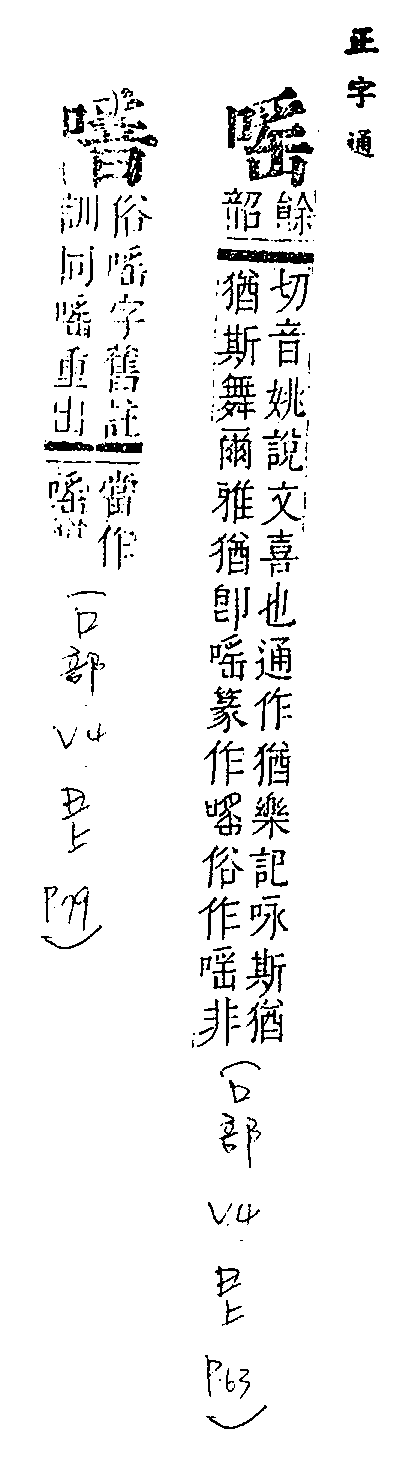 正字通
嗂
餘
韶
切音姚說文喜也通作猶樂記咏斯猶
猶斯舞爾雅猶卽嗂篆作㗛俗作嗂非
(口部.V4.丑上
P.63)
俗嗂字舊註
訓同嗂重出
當作
嗂
(口部.V4.丑上
P.79)